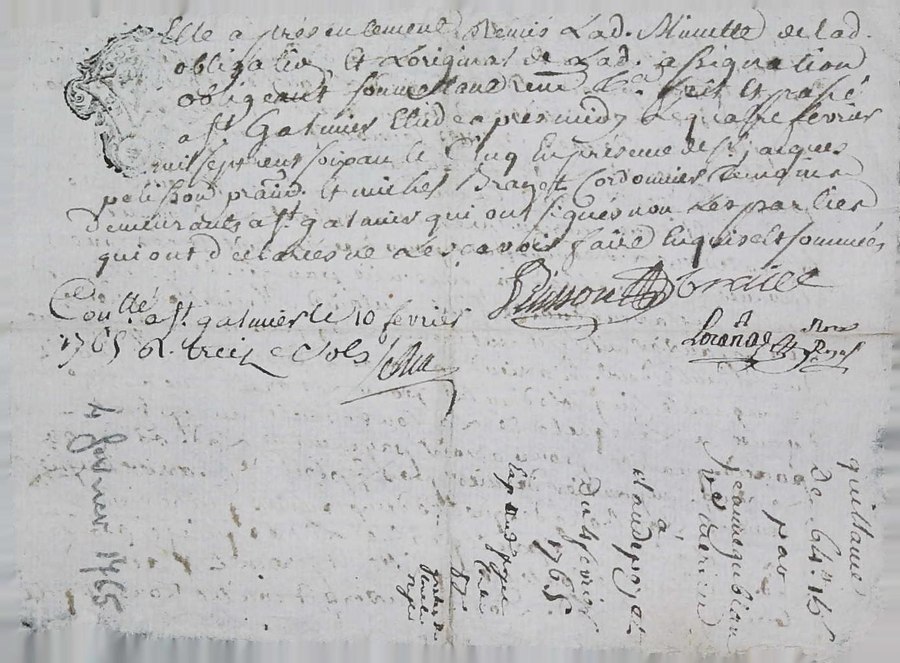 Elle a presentement Remis Lad. Minutte de lad.
obligation Et Loriginal de Lad. assignation
obligeant Soumettant Renn.t &.a fait Et passé
a St Galmier Etude apres midy Le quatre fevrier
mil sept cent Soixante Cinq En presence de Sr jacques
pelisson prattn. Et michel Braget Cordonnier Temoins
demeurants a St galmier qui ont Signés non Les parties
qui ont déclarées ne Le Scavoir faire Enquis et Sommées
Pelisson Braiet
Con.llé a St galmier le 10 fevrier
1765 R. treize Sols
Nore
Royal
4 fevrier 1765
quittance
De 64tt 15s
par
jeanne
Ve
a
claude
Du 4 fevrier
1765